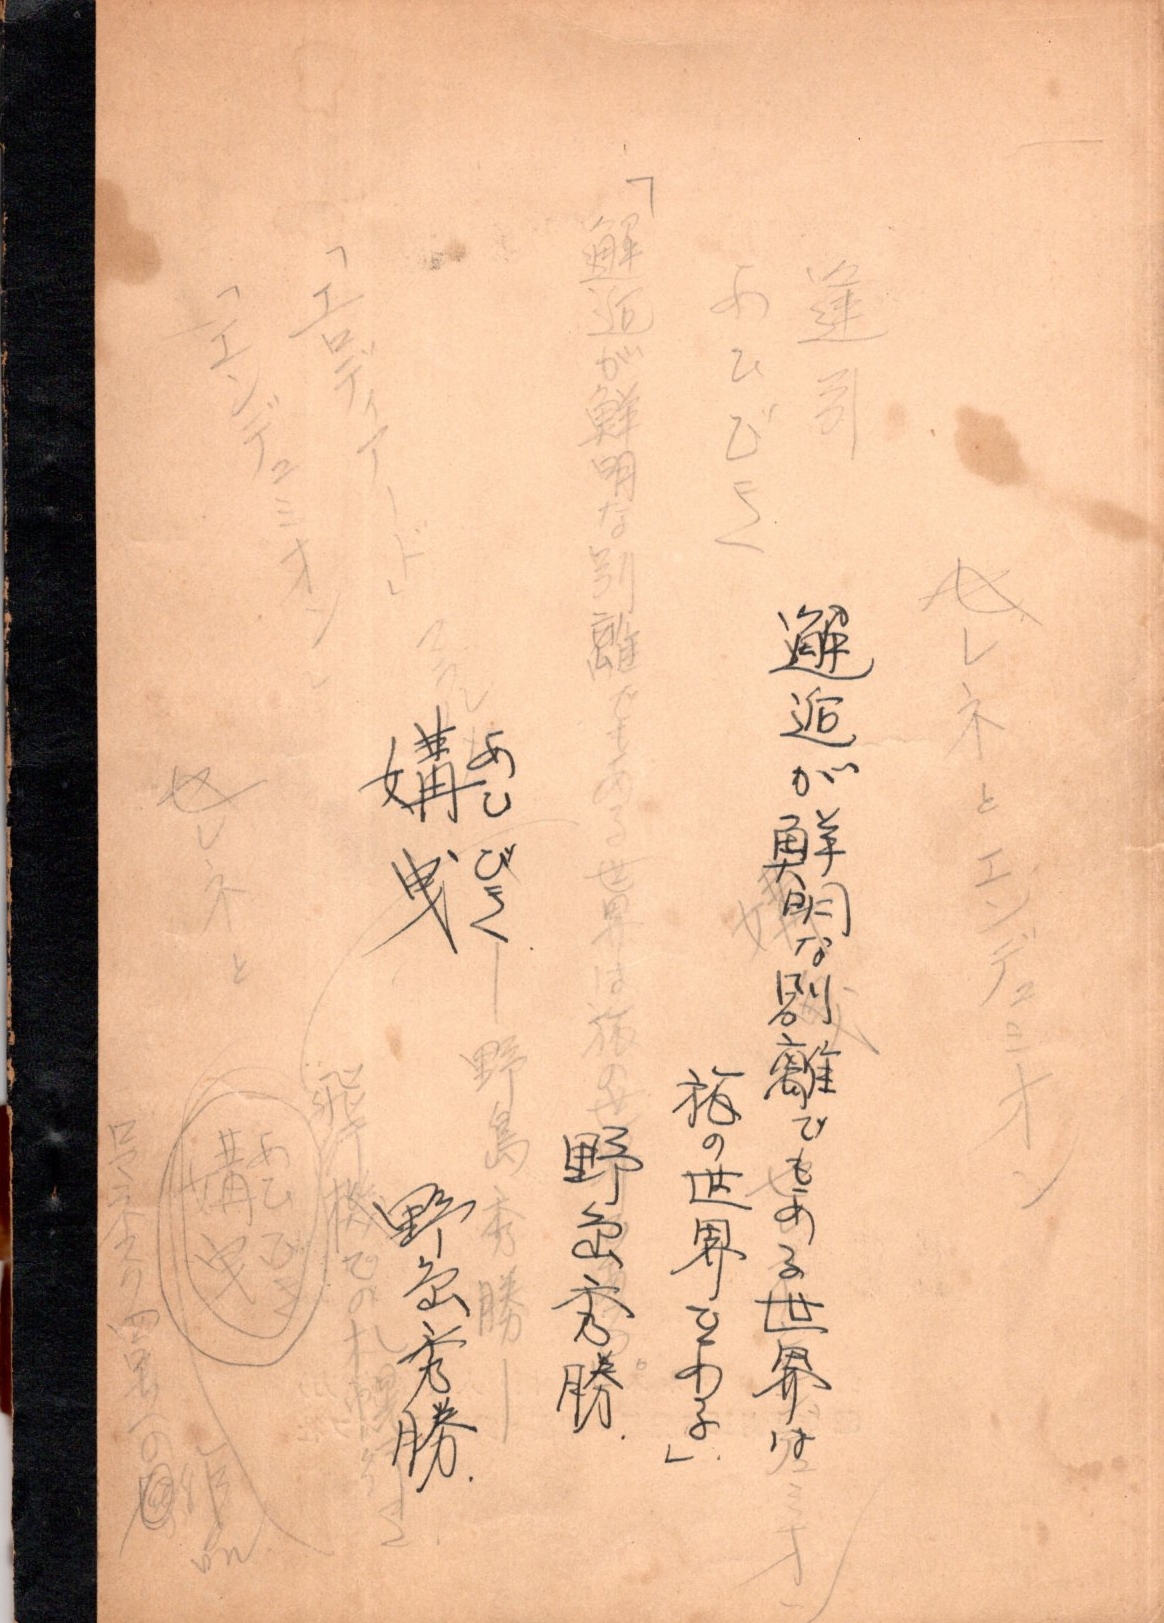 セレネとエンデュミオン
逢引
あひびき
邂逅が鮮明な別離でもある世界は
旅の世界である」
「邂逅が鮮明な別離でもある世界は旅の世
野島秀勝
あひびき
媾曳
野島秀勝
―野島秀勝―
「エロディアード」
「エンデュミオン」
飛行機での札幌行
セレネと
あひびき
媾曳